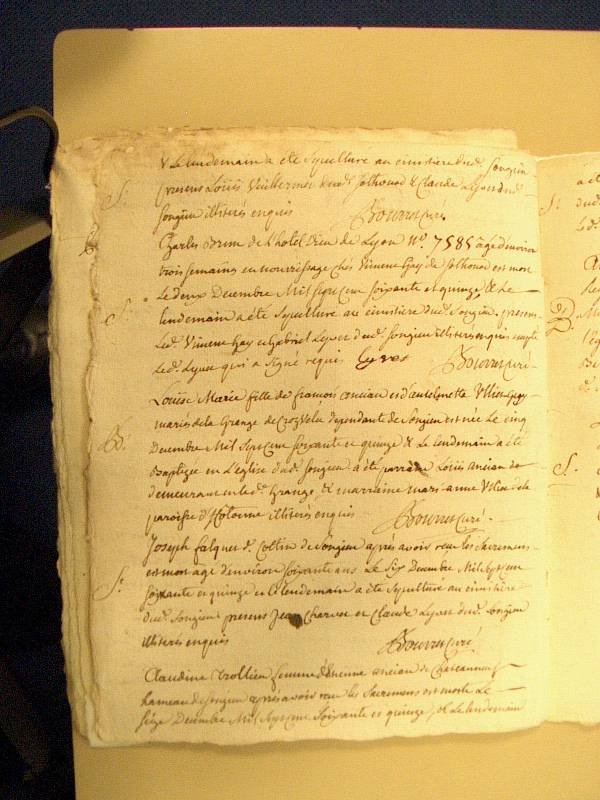 & Le lendemain a été Sepulturé au cimetiere dud. Songieu
S. presens Loüis Vuillermet dud. Jolhoud & Claude Lyvet dud.
Songieu illiterés enquis Bouvret Curé
Charles Brun de L'hotel Dieu de Lyon N°. 7585 âgé denviron
trois semaines en nourrissage chés Vincent Gay de Jolhoud est mort
Le deux Decembre Mil Sept cent Soixante et quinze & Le
S. lendemain a été Sepulturé au cimetiere dud. Songieu. presens
Led. Vincent Gay et Gabriel Lyvet dud. Songieu illiterés enquis excepté
Led. Lyvet qui a signé requis Lyvet Bouvret Curé.
Louise Marie fille de françois ancian et d'antoinette
mariés de la Grange de dependante de Songieu est née Le cinq
B. Decembre Mil Sept cent soixante et quinze & Le lendemain a été
Baptizée en L'église dud. Songieu a été parrain Loüis ancian de
demeurant en lad. Grange, & marraine marianne de la
paroisse d'hotonne illiterés enquis Bouvret Curé.
Joseph falquet d. Collin de Songieu après avoir reçu les Sacremens
est mort âgé d'environ soixante ans Le Six Decembre Mil Sept cent
S. soixante et quinze et Le lendemain a été Sepulturé au cimetiere
dud. Songieu presens Jean Charvet et Claude Lyvet dud. Songieu
illiterés enquis Bouvret Curé
Claudine femme d'Etienne ancian de Chateauneuf
hameau de Songieu après avoir reçu les Sacremens est morte Le
seize Decembre Mil Sept cent Soixante et quinze, & Le lendemain